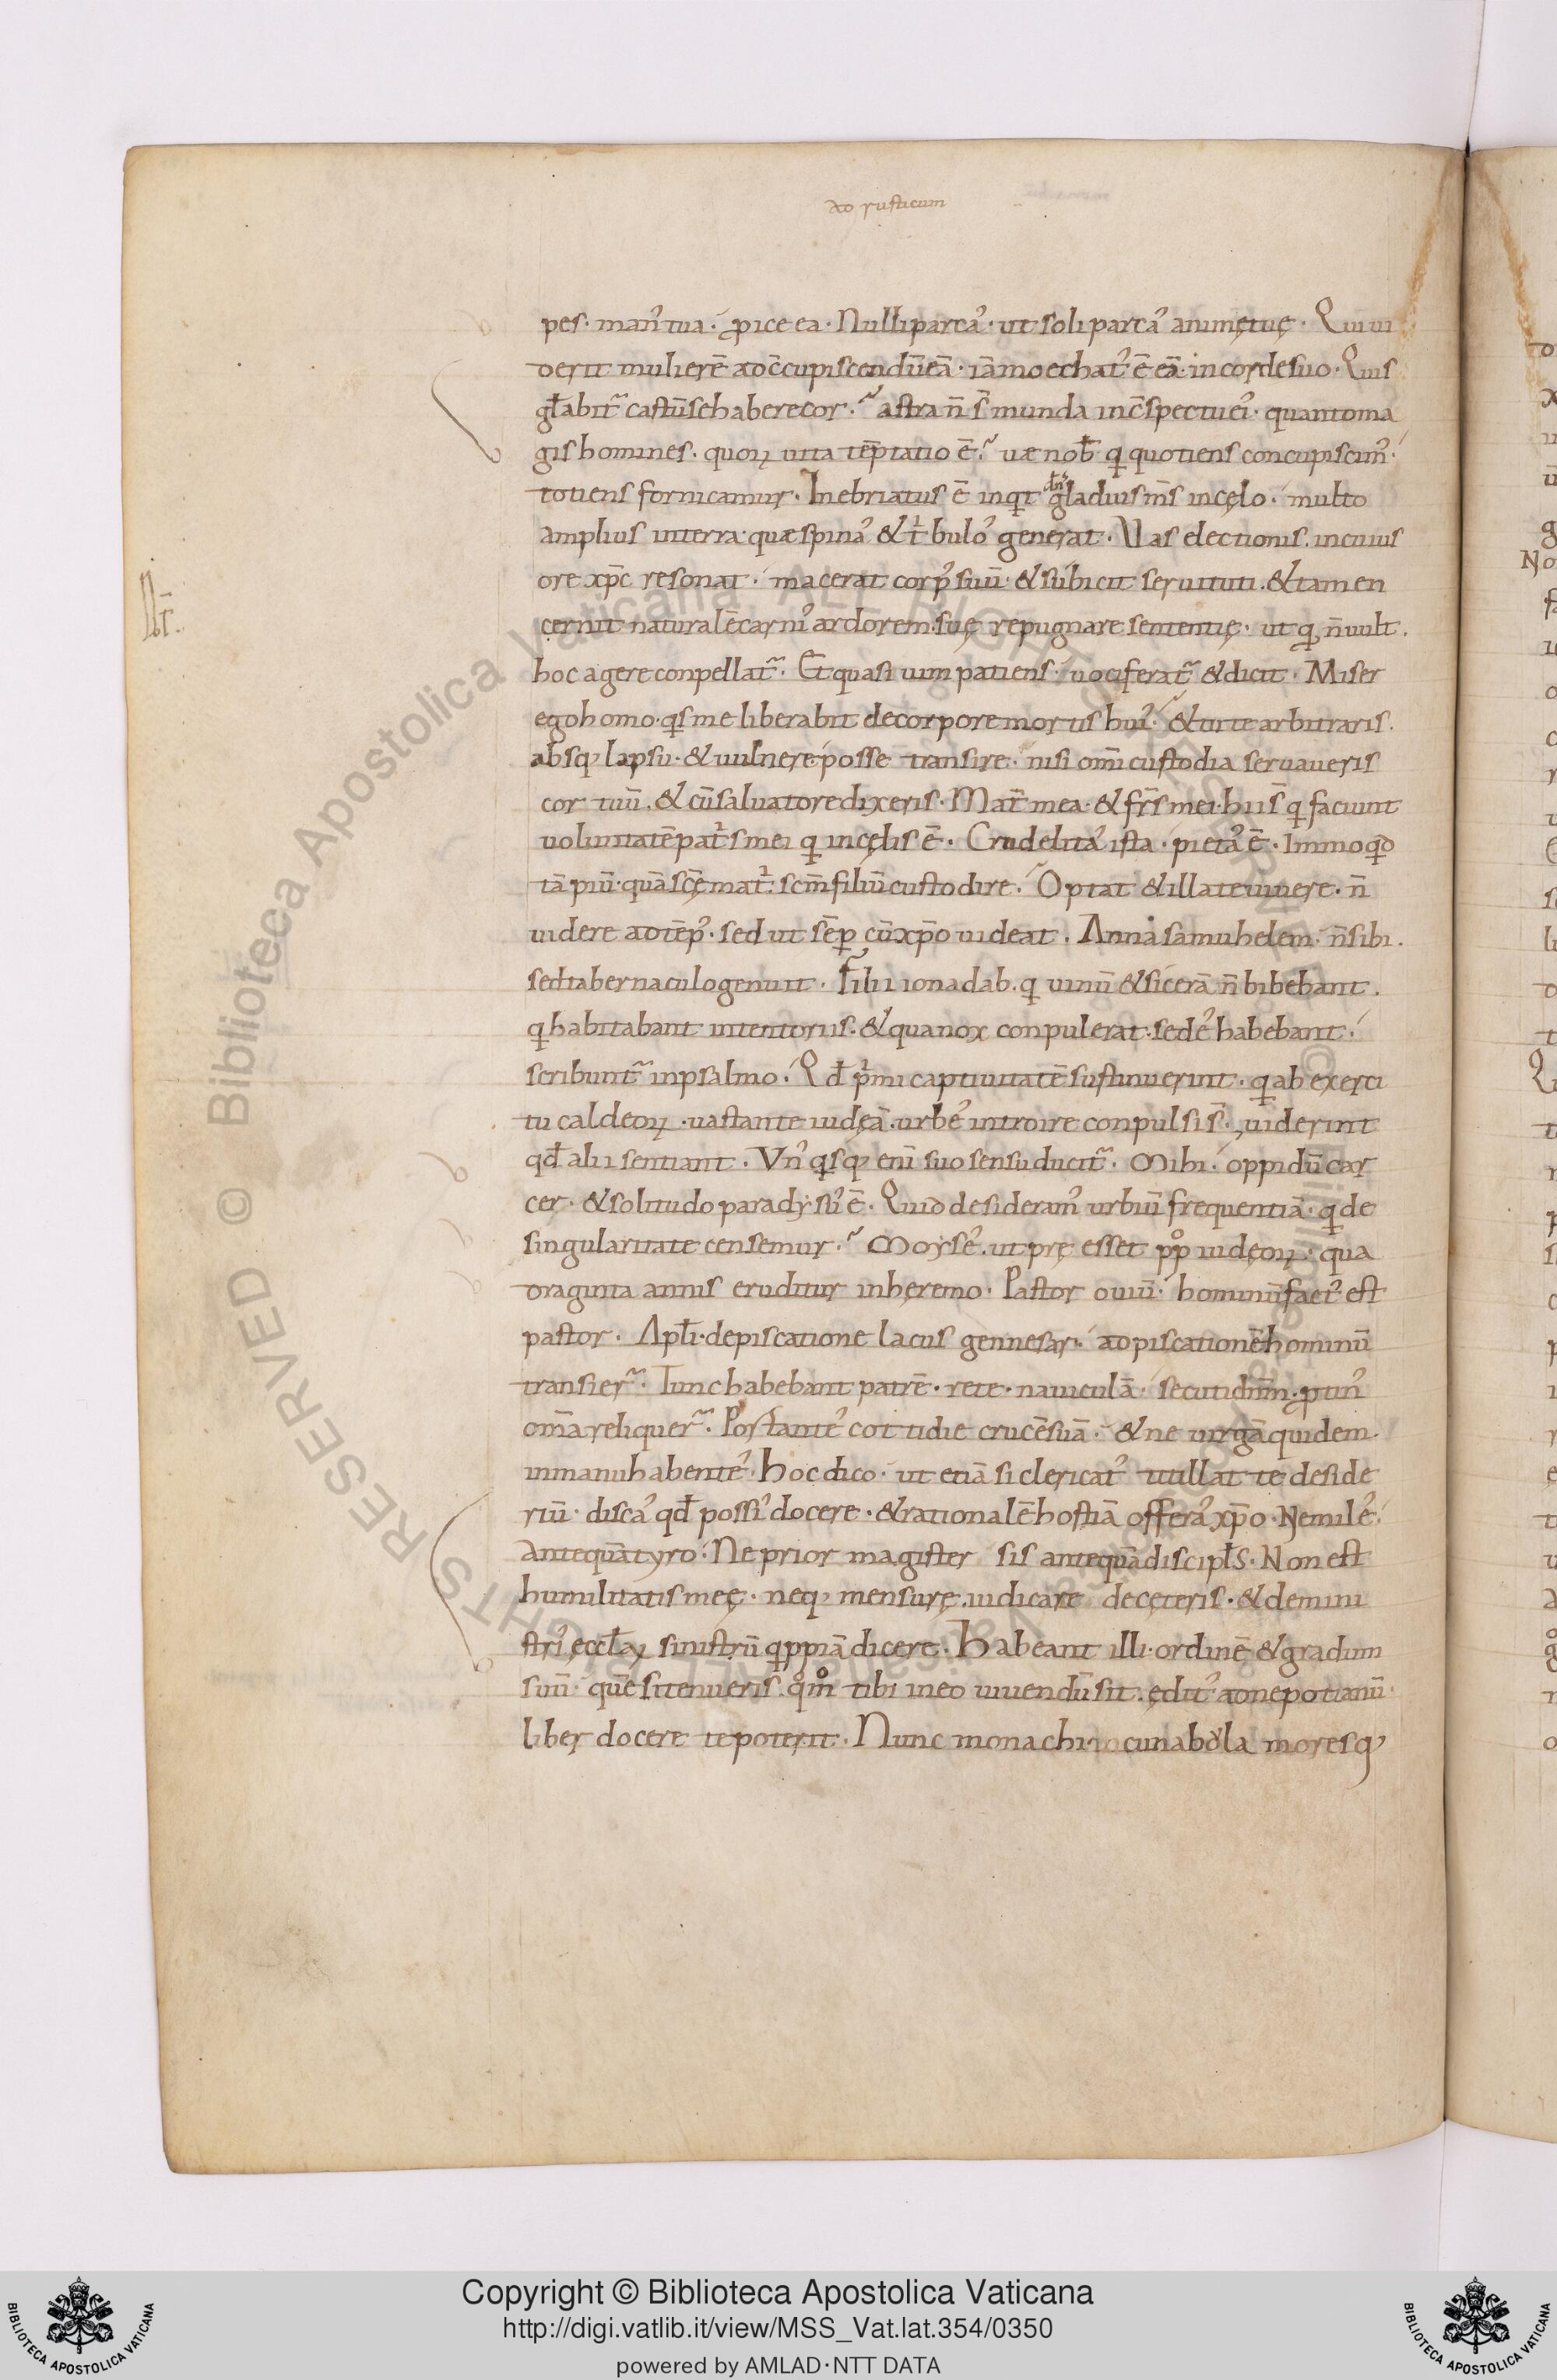 ad rusticum
pes· man᾿ tua· ꝓice ea· Nulli parca᾿· ut soli parca᾿ animę tuę· Qui ui
derit mulierē ad c̄cupiscendū eā· iā moechat᾿ ē eā· in corde suo· Quis
głabit᷑ castū se habere cor·᷑ astra n̄ s̄ munda in c̄spectu ei᾿· quanto ma
gis homines· quoꝝ uita tēptatio ē·᷑ uæ nob̄ qͥ quotiens concupiscim᾿·
totiens fornicamur· Inebriatus ē inqͥt dn̄s gladius m̄s in cęlo· multo
amplius in terra· quæ spina᾿ & tͥbulo᾿ generat· Vas electionis· in cuius
ore xp̄c resonat· macerat corp᾿ suū· & subicit seruituti· & tamen
Nr̄.
cernit naturalē carni᾿ ardorem· suę repugnare sententię· ut qͥ n̄ uult·
hoc agere conpellat᷑· Et quasi uim patiens· uociferat᷑ & dicit· Miser
ego homo· qͥs me liberabit de corpore mortis hui᾿·᷑ & tu te arbitraris·
absq; lapsu· & uulnere posse transire· nisi om̄i custodia seruaueris
cor tuū· & cū saluatore dixeris· Mat̄ mea· & fr̄s mei· hii s̄ qͥ faciunt
uoluntatē patͥs mei qͥ in cęlis ē· Crudelita᾿ ista· pieta᾿ ē· Immo qͥd
tā piū· quā scę̄ matͥ· scm̄ filiū custodire·᷑ Optat & illa te uiuere· n̄
uidere ad tēp᾿· sed ut sēꝑ cū xp̄o uideat· Anna samuhelem· n̄ sibi·
sed tabernaculo genuit· Filii ionadab· qͥ uinū & sicerā n̄ bibebant·
qͥ habitabant in tentoriis· & qua nox conpulerat· sede᾿ habebant·
scribunt᷑ in psalmo· Qd̄ pͥmi captiuitatē sustinuerint· qͥ ab exerci
tu caldeoꝝ· uastante iudęā· urbe᾿ introire conpulsi s̄· uiderint
qd̄ alii sentiant· Vn᾿ qͥsq; eni᾿ suo sensu ducit᷑· Mihi· oppidū car
cer· & solitudo paradysu᾿ ē· Quid desideram᾿ urbiū frequentiā· qͥ de
singularitate censemur·᷑ Moyse᾿· ut pręesset pp̊ iudęoꝝ· qua
draginta annis eruditur in hęremo· Pastor ouiū· hominū fact᾿ est
pastor· Apłi· de piscatione lacus gennesar· ad piscationē hominū
transier᷑· Tunc habebant patrē· rete· nauiculā· secuti dn̄m· ꝓtin᾿
om̄a reliquer᷑· Portante᾿ cottidie crucē suā· & ne uirgā quidem·
in manu habente᾿· Hoc dico· ut etiā si clericat᾿ titillat te deside
riū· disca᾿ qd̄ possi᾿ docere· & rationalē hostiā offera᾿ xp̄o· Ne mile᾿
antequā tyro· Ne prior magister sis antequā discipłs· Non est
humilitatis meę· neq; mensurę iudicare de cęteris· & de mini
stri᾿ eccłaꝝ sinistrū qͥppiā dicere· Habeant illi· ordinē & gradum
suū· quē si tenueris· qm̊ tibi in eo uiuendū sit· edit᾿ ad nepotianū·
liber docere te poterit· Nunc monachi incunabula moresq;
Copyright © Biblioteca Apostolica Vaticana
http://digi.vatlib.it/view/MSS_Vat.lat.354/0350
powered by AMLAD·NTT DATA
BIBLIOTECA APOSTOLICA VATICANA
BIBLIOTECA APOSTOLICA VATICANA